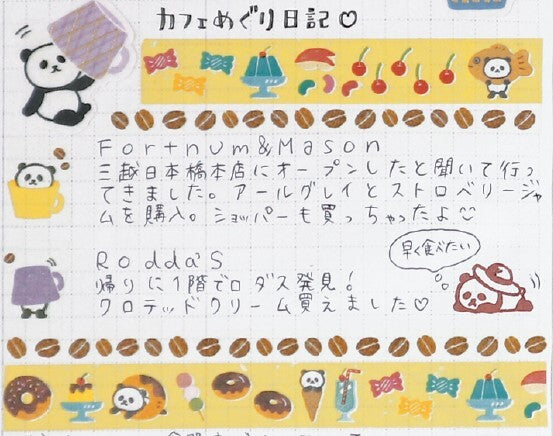 カフェめぐり日記♡
Fortnum&Mason
三越日本橋本店にオープンしたと聞いて行っ
てきました。アールグレイとストロベリージャ
ムを購入。ショッパーも買っちゃったよ♡
Rodda's
帰りに1階でロダス発見!
クロテッドクリーム買えました♡
早く食べたい